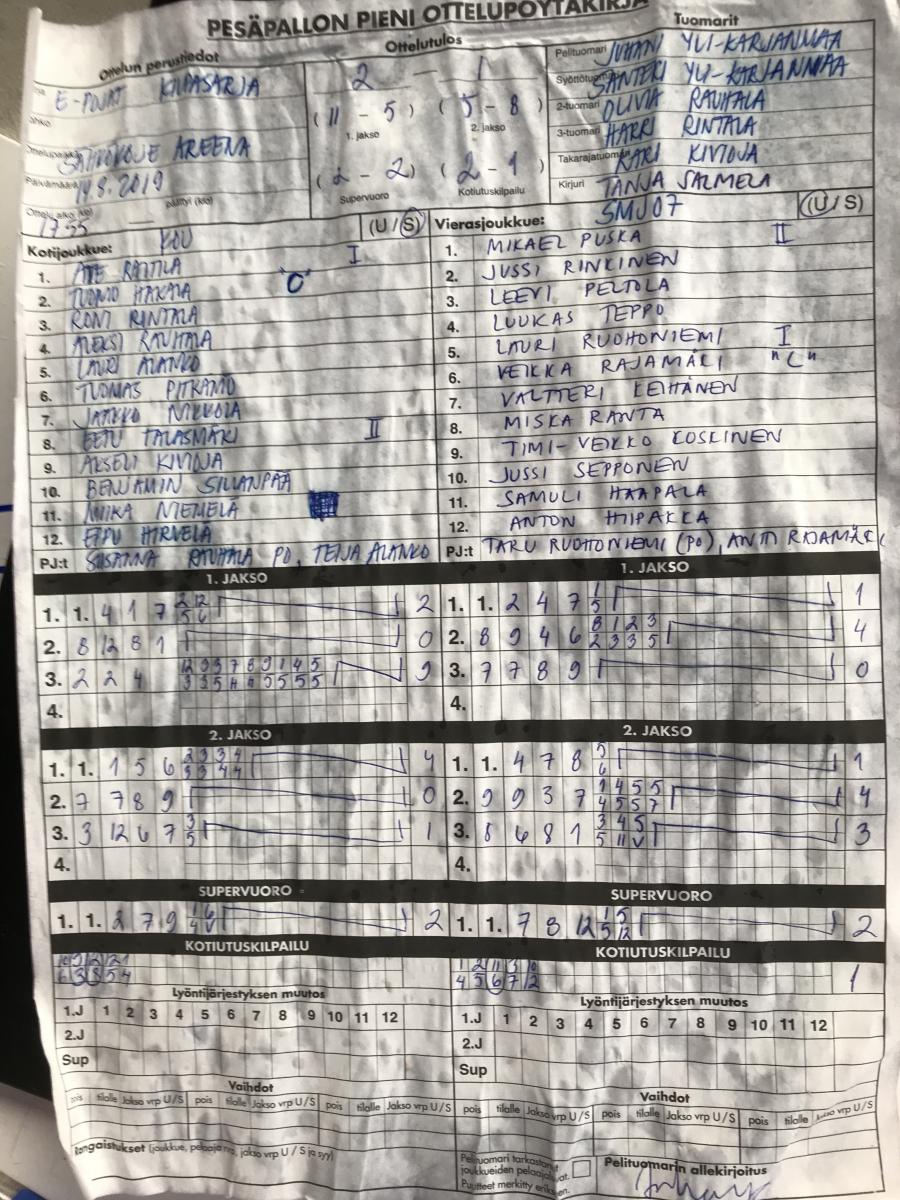 PESÄPALLON PIENI OTTELUPÖYTÄKIRJA
Ottelun perustiedot
E-POJAT KILPASARJA
Lohko
SÄHKÖKOJE AREENA
Päivämäärä 14.8.2019
Ottelu alkoi (klo) 17.55 päättyi (klo)
Ottelutulos
2 - 1
(11 - 5) (5 - 8)
1. jakso 2. jakso
(2 - 2) (2 - 1)
Supervuoro Kotiutuskilpailu
Tuomarit
Pelituomari JUHANI YLI-KARJANMAA
Syöttötuomari SANTERI YLI-KARJANMAA
2-tuomari OLIVIA RAUHALA
3-tuomari HARRI RINTALA
Takarajatuomari KARI KIVIOJA
Kirjuri TANJA SALMELA
Kotijoukkue: KOU (U/S)
1. RATTILA I
2. TUOMO HAKALA "C"
3. RONI RINTALA
4. ALEKSI RAUHALA
5. LAURI ALANKO
6. TUOMAS PITKÄMÖ
7. JAAKKO NIKKOLA
8. EETU TALASMÄKI II
9. AKSELI KIVIOJA
10. BENJAMIN SILLANPÄÄ
11. MIIKA NIEMELÄ
12. EEPU HIRVELÄ
PJ:t SUSANNA RAUHALA PO, TEIJA ALANKO
Vierasjoukkue: SMJ07 (U/S)
1. MIKAEL PUSKA II
2. JUSSI RINKINEN
3. LEEVI PELTOLA
4. LUUKAS TEPPO
5. LAURI RUOHONIEMI I
6. VEIKKA RAJAMÄKI "C"
7. VALTTERI LEHTÄNEN
8. MISKA RANTA
9. TIMI-VEIKKO KOSKINEN
10. JUSSI SEPPONEN
11. SAMULI HAAPALA
12. ANTON HIIPAKKA
PJ:t TARU RUOHONIEMI (PO), ANTTI RAJAMÄKI
1. JAKSO
1. 1. 4 1 7 2 12 2
5 6
2. 8 12 8 1 0
3. 2 2 4 12 9 3 7 8 9 1 4 5 9
3 3 5 5 5 5 5
4.
1. JAKSO
1. 1. 2 4 7 1 1
5
2. 8 9 4 6 8 1 2 3 4
2 3 3 5
3. 7 7 8 9 0
4.
2. JAKSO
1. 1. 1 5 6 2 3 3 4 4
3 3 4 4
2. 7 7 8 9 0
3. 3 12 6 7 3 1
5
4.
2. JAKSO
1. 1. 4 7 8 5 1
6
2. 9 9 3 7 1 4 5 5 4
4 5 5 7
3. 8 6 8 1 3 4 5 3
5 11 V
4.
SUPERVUORO
1. 1. 2 7 9 1 6 2
4 V
SUPERVUORO
1. 1. 7 8 12 1 5 2
5 12
KOTIUTUSKILPAILU
6 3 8 5 4
KOTIUTUSKILPAILU
1 2 11 3
4 5 6 7 2 1
Lyöntijärjestyksen muutos
1.J 1 2 3 4 5 6 7 8 9 10 11 12
2.J
Sup
Lyöntijärjestyksen muutos
1.J 1 2 3 4 5 6 7 8 9 10 11 12
2.J
Sup
Vaihdot
pois tilalle Jakso vrp U/S pois tilalle Jakso vrp U/S pois tilalle Jakso vrp U/S
Vaihdot
pois tilalle Jakso vrp U/S pois tilalle Jakso vrp U/S pois tilalle Jakso vrp U/S
Rangaistukset (joukkue, pelaaja nro, jakso vrp U / S ja syy)
Pelituomari tarkastanut
joukkueiden
Puutteet merkitty
Pelituomarin allekirjoitus